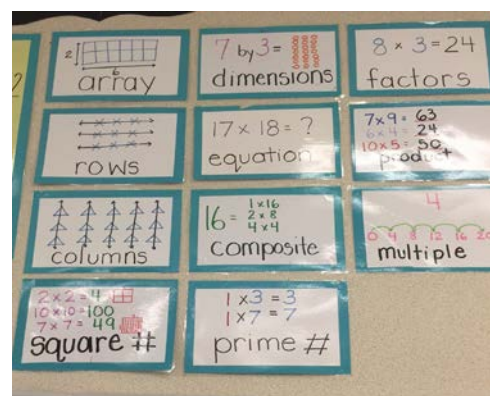 2
6
array
7 by 3 =
dimensions
8 × 3 = 24
factors
rows
17 × 18 = ?
equation
7 × 9 = 63
6 × 4 = 24
10 × 5 = 50
product
columns
16 = 1 × 16
2 × 8
4 × 4
composite
4
0 4 8 12 16 20
multiple
2 × 2 = 4
10 × 10 = 100
7 × 7 = 49
square #
1 × 3 = 3
1 × 7 = 7
prime #